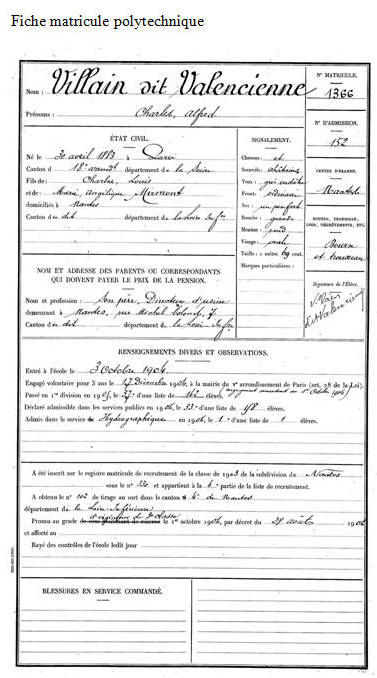 Fiche matricule polytechnique
Nom : Villain dit Valencienne
Prénoms : Charles, Alfred
N° MATRICULE.
1366
N° D'ADMISSION.
152
CENTRE D'EXAMEN.
Nantes
BOURSE, TROUSSEAU, LOIS, DÉGRÈVEMENTS, ETC.
Bourse
et trousseau
Signature de l'Élève.
Valencienne
ÉTAT CIVIL.
Né le 30 avril 1883 à Paris
Canton d 18e arrondt département de la Seine
Fils de : Charles, Louis
et de : Marie Angélique
domiciliés à Nantes
Canton en dit département de la Loire Infre
SIGNALEMENT.
Cheveux : et
Sourcils : châtains
Yeux :
Front : ordinaire
Nez :
Bouche : grande
Menton : rond
Visage : ovale
Taille : 1 mètre 69 cent.
Marques particulières :
NOM ET ADRESSE DES PARENTS OU CORRESPONDANTS
QUI DOIVENT PAYER LE PRIX DE LA PENSION.
Nom et profession : Son père, Directeur d'usine
demeurant à Nantes, rue Michel Colomb, 7.
Canton en dit département de la Loire Infre
RENSEIGNEMENTS DIVERS ET OBSERVATIONS.
Entré à l'école le 3 Octobre 1904
Engagé volontaire pour 3 ans le 17 Décembre 1904, à la mairie du Ve arrondissement de Paris (art. 28 de la Loi).
Passé en 1re division en 1905, le d'une liste de 162 élèves.
Déclaré admissible dans les services publics en 1906, le 33e d'une liste de élèves.
Admis dans le service d'Hydrographique en 1906, le 1e d'une liste de 1 élèves.
A été inscrit sur le registre matricule de recrutement de la classe de 1903 de la subdivision de Nantes
sous le n° 330 et appartient à la 4e partie de la liste de recrutement.
A obtenu le n° 102 de tirage au sort dans le canton 4e de Nantes
département de la Loire Inférieure
Promu au grade d'ingénieur de 3e classe le 1er octobre 1906, par décret du 28 août 1906
et affecté au
Rayé des contrôles de l'école ledit jour
BLESSURES EN SERVICE COMMANDÉ.